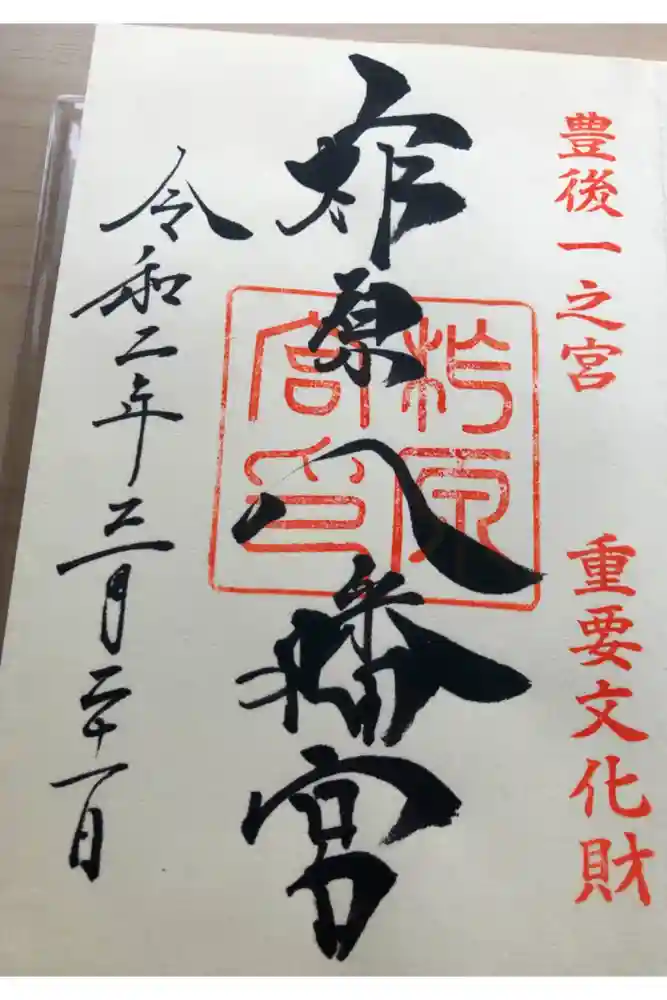 豊後一之宮 重要文化財
柞原八幡宮
柞原
宮印
令和二年三月二十一日